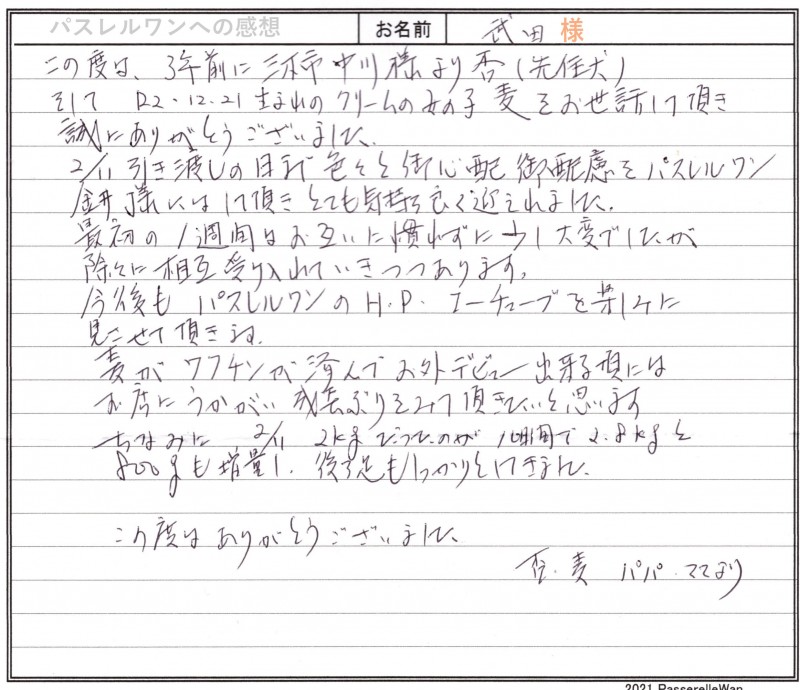 パスレルワンへの感想 お名前 武田 様
この度は、3年前に三次市 中川様より杏(先住犬)
そして R2.12.21生まれのクリームの女の子 麦をお世話して頂き
誠にありがとうございました。
2/11 引き渡しの日まで 色々と御心配 御配慮をパスレルワン
様にはして頂き とても気持ち良く迎えれました。
最初の1週間はお互いに慣れずに少し大変でしたが
除々に相互受け入れていきつつあります。
今後も パスレルワンのH.P. ユーチューブを楽しみに
見させて頂きます。
麦がワクチンが済んで お外デビュー出来る頃には
お店にうかがい 成長ぶりをみて頂きたいと思います
ちなみに 2/11 2kgだったのが 1週間で2.8kgと
800gも増量し、後ろ足もしっかりとしてきました。
この度は ありがとうございました。
杏・麦 パパ・ママより
2021 PasserelleWan